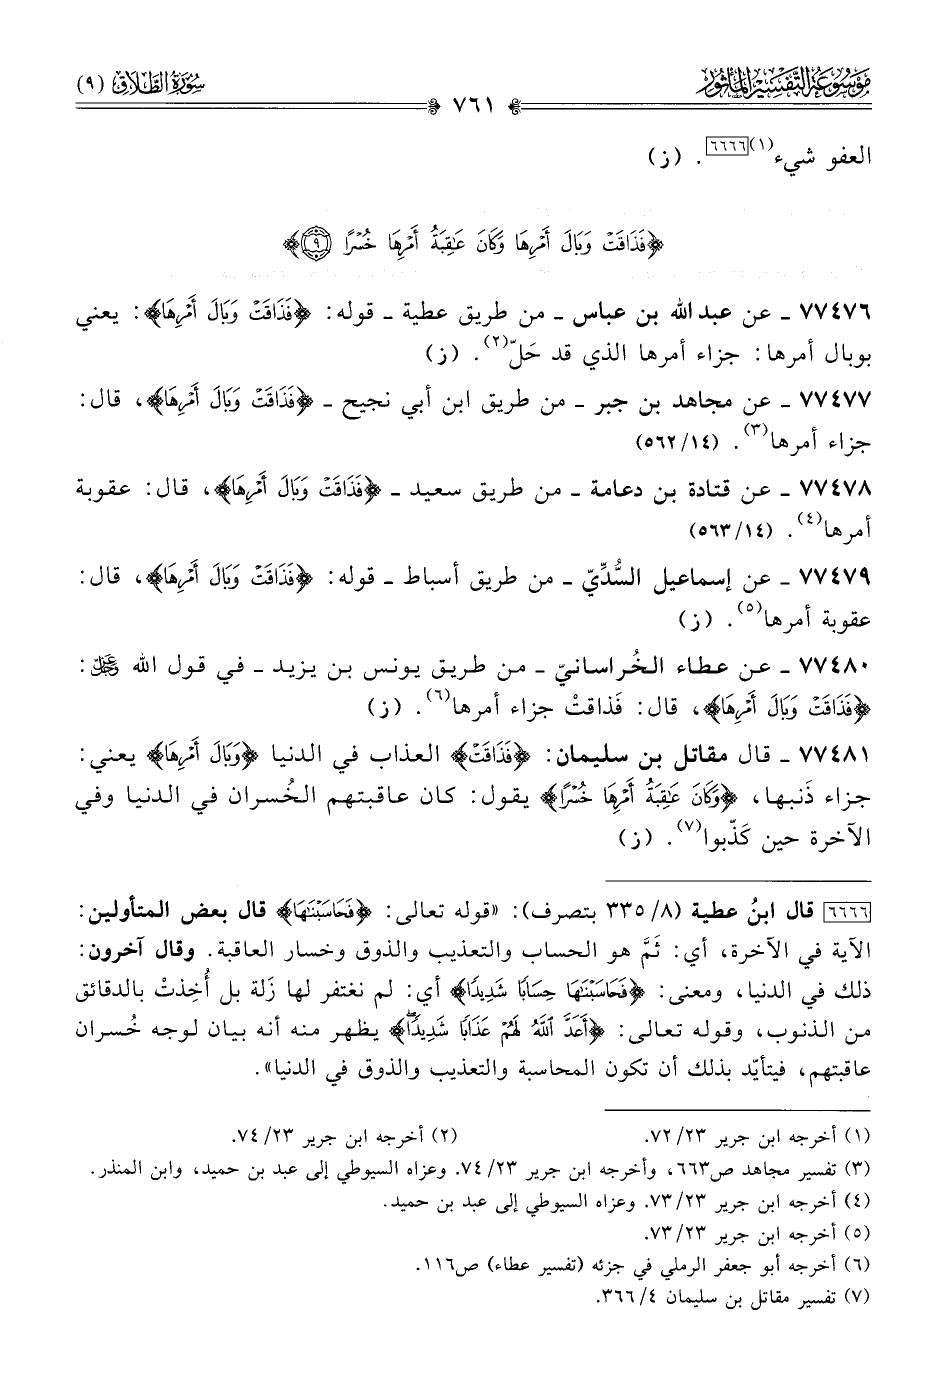 مَوْسُوعَةُ التَّفْسِيرِ المَأْثُورِ
سُورَةُ الطَّلَاقِ (٩)
٧٦١
العفو شيء(١)[٦٦٦٦]. (ز)
﴿فَذَاقَتْ وَبَالَ أَمْرِهَا وَكَانَ عَٰقِبَةُ أَمْرِهَا خُسْرًا ٩﴾
٧٧٤٧٦ ـ عن عبد الله بن عباس ـ من طريق عطية ـ قوله: ﴿فَذَاقَتْ وَبَالَ أَمْرِهَا﴾: يعني
بوبال أمرها: جزاء أمرها الذي قد حَلّ(٢). (ز)
٧٧٤٧٧ ـ عن مجاهد بن جبر ـ من طريق ابن أبي نجيح ـ ﴿فَذَاقَتْ وَبَالَ أَمْرِهَا﴾، قال:
جزاء أمرها(٣). (٥٦٢/١٤)
٧٧٤٧٨ ـ عن قتادة بن دعامة ـ من طريق سعيد ـ ﴿فَذَاقَتْ وَبَالَ أَمْرِهَا﴾، قال: عقوبة
أمرها(٤). (٥٦٣/١٤)
٧٧٤٧٩ ـ عن إسماعيل السُّدِّيّ ـ من طريق أسباط ـ قوله: ﴿فَذَاقَتْ وَبَالَ أَمْرِهَا﴾، قال:
عقوبة أمرها(٥). (ز)
٧٧٤٨٠ ـ عن عطاء الخُراسانيّ ـ من طريق يونس بن يزيد ـ في قول الله عَزَّ وَجَلَّ:
﴿فَذَاقَتْ وَبَالَ أَمْرِهَا﴾، قال: فَذاقتْ جزاء أمرها(٦). (ز)
٧٧٤٨١ ـ قال مقاتل بن سليمان: ﴿فَذَاقَتْ﴾ العذاب في الدنيا ﴿وَبَالَ أَمْرِهَا﴾ يعني:
جزاء ذَنبها، ﴿وَكَانَ عَٰقِبَةُ أَمْرِهَا خُسْرًا﴾ يقول: كان عاقبتهم الخُسران في الدنيا وفي
الآخرة حين كَذّبوا(٧). (ز)
[٦٦٦٦] قال ابنُ عطية (٨/ ٣٣٥ بتصرف): «قوله تعالى: ﴿فَحَاسَبْنَٰهَا﴾ قال بعض المتأولين:
الآية في الآخرة، أي: ثَمَّ هو الحساب والتعذيب والذوق وخسار العاقبة. وقال آخرون:
ذلك في الدنيا، ومعنى: ﴿فَحَاسَبْنَٰهَا حِسَابًا شَدِيدًا﴾ أي: لم نغتفر لها زَلة بل أُخِذتْ بالدقائق
من الذنوب، وقوله تعالى: ﴿أَعَدَّ ٱللَّهُ لَهُمْ عَذَابًا شَدِيدًاۖ﴾ يظهر منه أنه بيان لوجه خُسران
عاقبتهم، فيتأيّد بذلك أن تكون المحاسبة والتعذيب والذوق في الدنيا».
(١) أخرجه ابن جرير ٢٣/ ٧٢.
(٢) أخرجه ابن جرير ٢٣/ ٧٤.
(٣) تفسير مجاهد ص٦٦٣، وأخرجه ابن جرير ٢٣/ ٧٤. وعزاه السيوطي إلى عبد بن حميد، وابن المنذر.
(٤) أخرجه ابن جرير ٢٣/ ٧٣. وعزاه السيوطي إلى عبد بن حميد.
(٥) أخرجه ابن جرير ٢٣/ ٧٣.
(٦) أخرجه أبو جعفر الرملي في جزئه (تفسير عطاء) ص١١٦.
(٧) تفسير مقاتل بن سليمان ٤/ ٣٦٦.